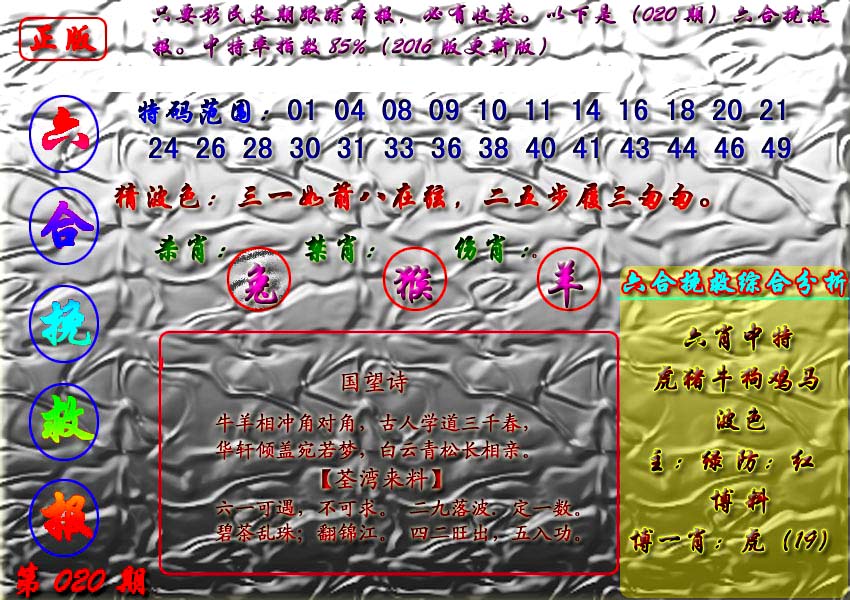 只要彩民长期跟踪本报，必有收获。以下是（020期）六合挽救
报。中特率指数85%（2016版更新版）
正版
六
合
挽
救
报
第020期
特码范围：01 04 08 09 10 11 14 16 18 20 21
24 26 28 30 31 33 36 38 40 41 43 44 46 49
猜波色：三一如箭八在弦，二五步履三匆匆。
杀肖：兔 禁肖：猴 伤肖：羊。
国望诗
牛羊相冲角对角，古人学道三千春，
华轩倾盖宛若梦，白云青松长相亲。
【荃湾来料】
六一可遇，不可求。 二九落波．定一数。
碧茶乱珠；翻锦江。 四二旺出，五入功。
六合挽救综合分析
六肖中特
虎猪牛狗鸡马
波色
主：绿防：红
博料
博一肖：虎（19）